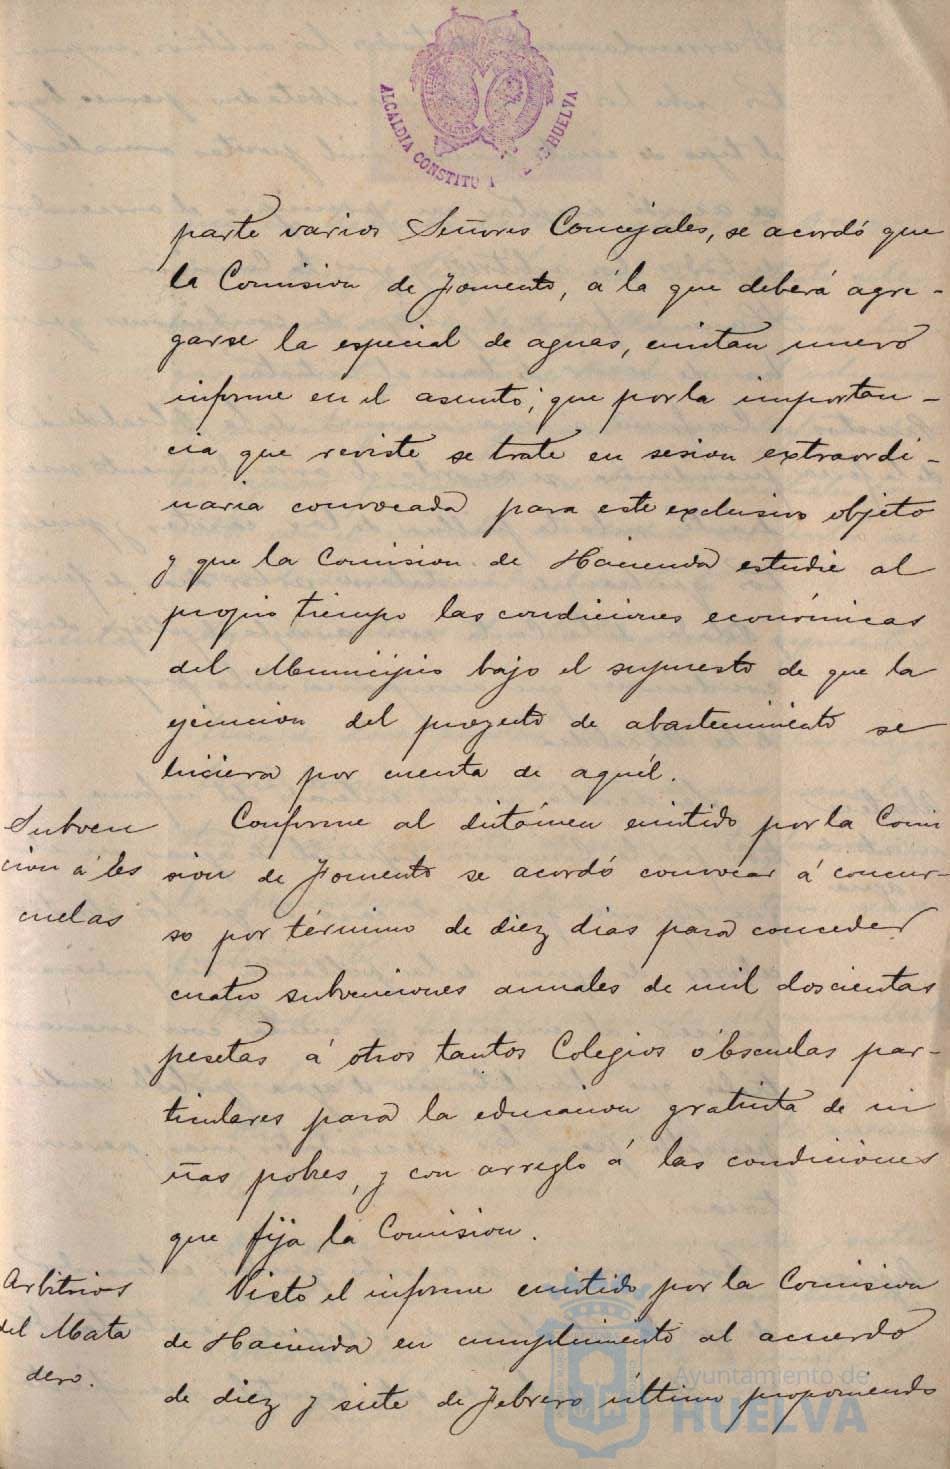 ALCALDIA CONSTITU HUELVA
parte varios Señores Concejales, se acordó que
la Comision de Fomento, á la que deberá agre-
garse la especial de aguas, emitan nuevo
informe en el asunto; que por la importan-
cia que reviste se trate en sesion extraordi-
naria convocada para este exclusivo objeto
y que la Comision de Hacienda estudie al
propio tiempo las condiciones económicas
del Municipio bajo el supuesto de que la
ejecucion del proyecto de abastecimiento se
hiciera por cuenta de aquél.
Subven
cion á Es
cuelas
Conforme al dictámen emitido por la Comi
sion de Fomento se acordó convocar á concur-
so por término de diez dias para conceder
cuatro subvenciones anuales de mil doscientas
pesetas á otros tantos Colegios ó Escuelas par-
ticulares para la educacion gratuita de ni
ñas pobres, y con arreglo á las condiciones
que fija la Comision.
Arbitrios
del Mata
dero.
Visto el informe emitido por la Comision
de Hacienda en cumplimiento al acuerdo
de diez y siete de Febrero último proponiendo
Ayuntamiento de
HUELVA